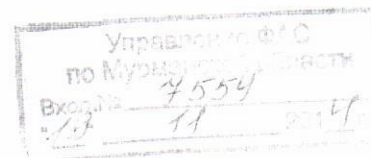 Управление ФАС
по Мурманской области
Вход.№ 7554
"13" 11 2014 г.